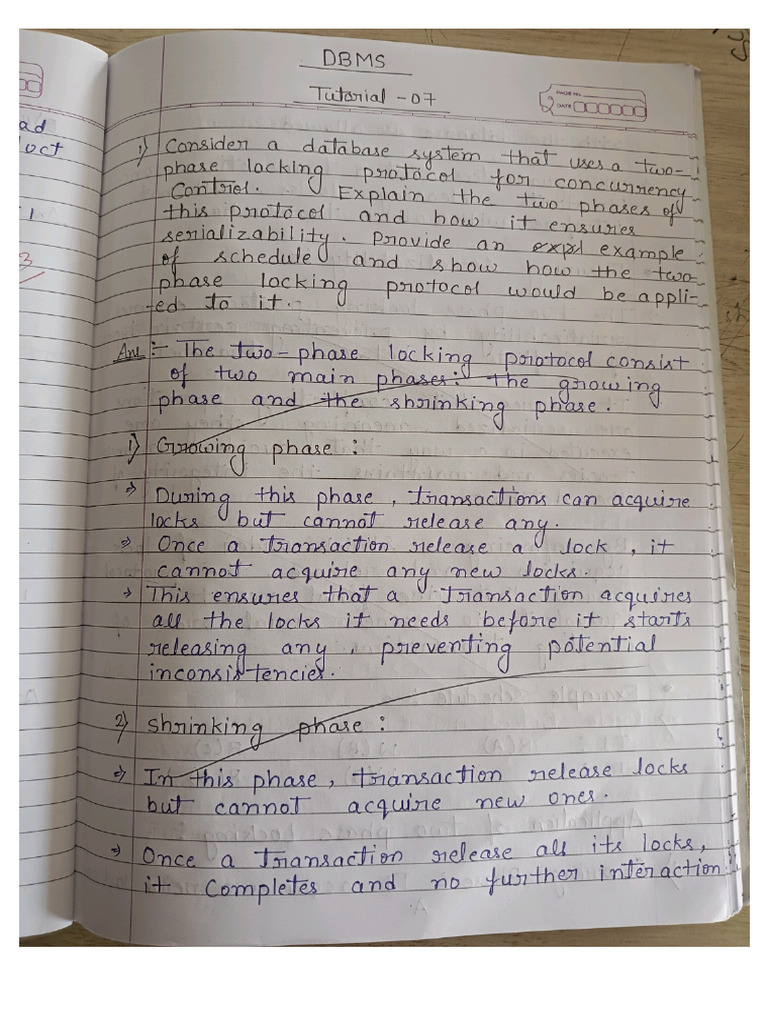 ad
uct
1
3
DBMS
Tutorial - 07
PAGE NO.
DATE
1) Consider a database system that uses a two-
phase locking protocol for concurrency
Control. Explain the two phases of
this protocol and how it ensures
serializability. Provide an expl example
of schedule and show how the two-
phase locking protocol would be appli-
-ed to it.
Ans :- The Two-phase locking protocol consist
of two main phases: the growing
phase and the shrinking phase.
1) Growing phase :
→ During this phase, transactions can acquire
locks but cannot release any.
→ Once a transaction release a lock, it
cannot acquire any new locks.
→ This ensures that a transaction acquires
all the locks it needs before it starts
releasing any, preventing potential
inconsistencies.
2) Shrinking phase :
→ In this phase, transaction release locks
but cannot acquire new ones.
→ Once a transaction release all its locks,
it completes and no further interaction